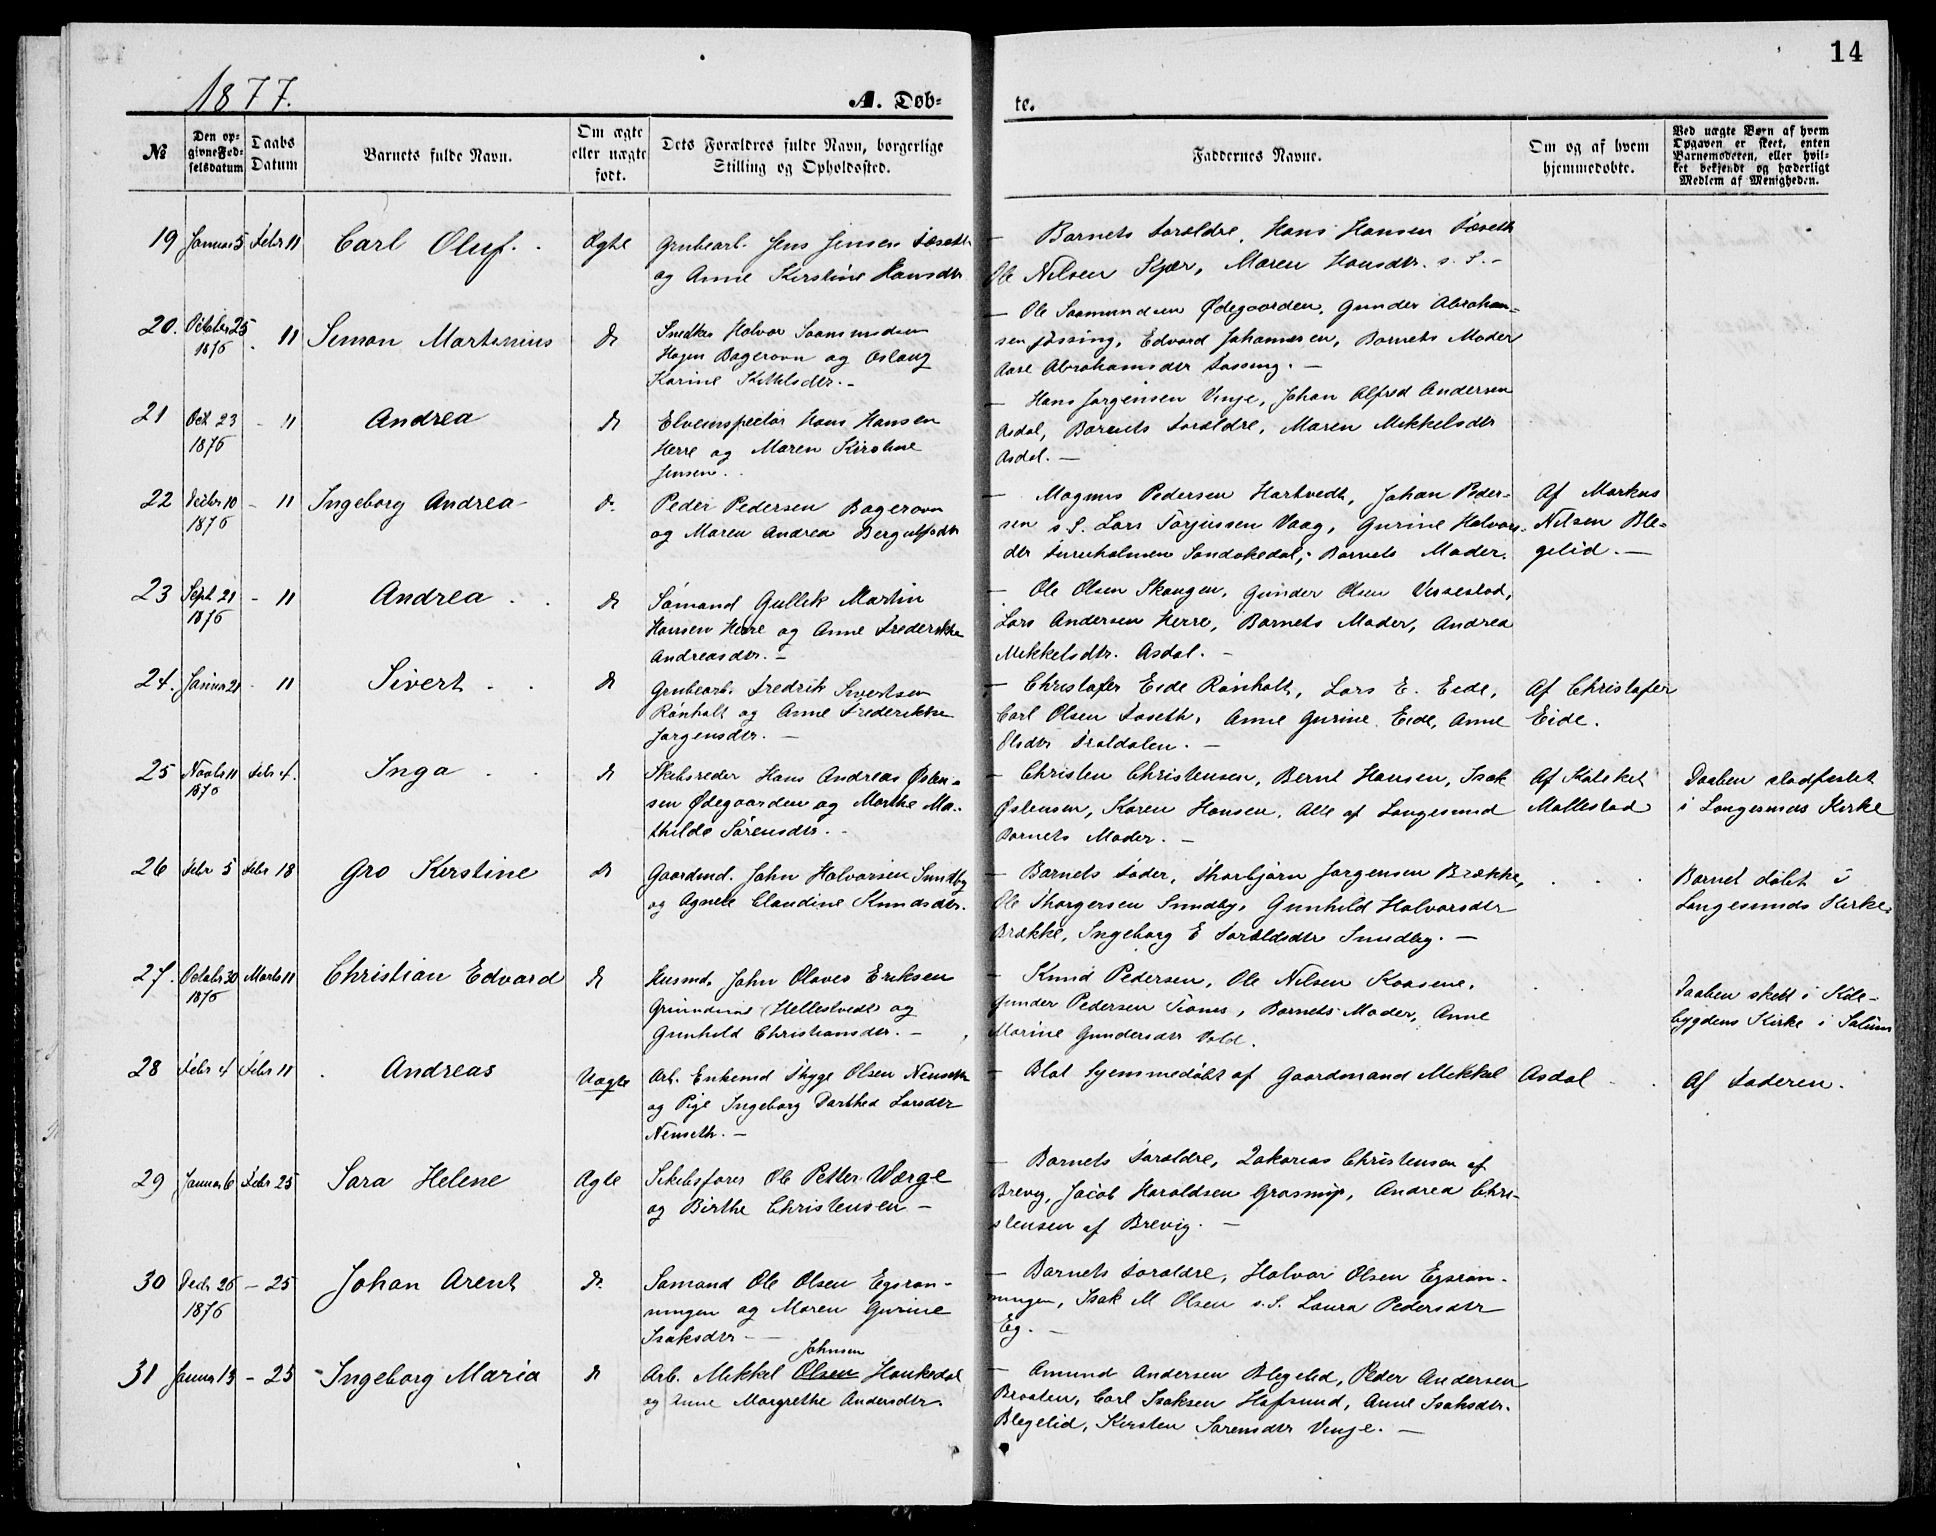 14
1877.
A. Døb-
te.
№
Den op-
givne Fød-
selsdatum
Daabs
Datum
Barnets fulde Navn.
Om ægte
eller uægte
født.
Dets Forældres fulde Navn, borgerlige
Stilling og Opholdssted.
Faddernes Navne.
Om og af hvem
hjemmedøbte.
Ved uægte Børn af hvem
Opgaven er skeet, enten
Barnemoderen, eller hvil-
ket bekjendt og hæderligt
Medlem af Menigheden.
19 Januar 5 Febr 11 Carl Oluf. Ægte Grubearb. Jens Jensen Fosseth
og Anne Kirstine Hansdtr
— Barnets Forældre, Hans Hansen Fosseth
Ole Nilsen Skjær, Maren Hansdtr. s. S.-
20. October 25 - 11 Simon Martinius do Snedker Halvor Saamundsen
1876
Hagen Bagerovn og Aslaug
Karine Kittelsdtr.-
— Ole Saamundsen Ødegaarden, Gunder Abraham-
sen Fossing, Edvard Johannesen, Barnets Moder
Aase Abrahamsdtr Fossing. —
21 Oct 23 - 11 Andrea do Elveinspectør Hans Hansen
1876
Herre og Maren Kirstine
Jensen.
— Hans Jørgensen Vinje, Johan Alfred Andersen
Asdal, Barnets Forældre, Maren Mikkelsdtr
Asdal. —
22 Decbr 10 - 11 Ingeborg Andrea do Peder Pedersen Bagerovn
1876
og Maren Andrea Bergulfsdtr
— Magnus Pedersen Hartvedt, Johan Peder-
sen s. S. Lars Torjussen Vaag, Gurine Halvors-
dtr Furuholmen Sandøkedal, Barnets Moder.
Af Markus
Nilsen Ble-
gelid. —
23 Sept 21 - 11 Andrea do Sømand Gullik Martin
1876
Hansen Herre og Anne Frederikke
Andreasdtr. —
— Ole Olsen Skougen, Gunder Olsen Vissestad,
Lars Andersen Herre, Barnets Moder, Andrea
Mikkelsdtr. Asdal. -
24. Januar 21 - 11 Sivert do Grubearb. Fredrik Sivertsen
Rønholt og Anne Frederikke
Jørgensdtr. —
— Christofer Eide Rønholt, Lars E. Eide,
Carl Olsen Foseth, Anne Gurine Eide, Anne
Olsdtr Traldalen. —
Af Christofer
Eide.
25 Novbr 11 Febr 4. Inga do Skibsreder Hans Andreas Østen-
1876
sen Ødegaarden og Marthe Ma-
thilde Sørensdtr. -
— Christen Christensen, Bernt Hansen, Isak
Østensen, Karen Hansen, Alle af Langesund
Barnets Moder. —
Af Kateket
Møllestad
Daaben stadfæstet
i Langesunds Kirke
26 Febr 5 Febr 18 Gro Kirstine do Gaardmd. John Halvorsen Sundby
og Agnete Claudine Knudsdtr.
— Barnets Fader, Thorbjørn Jørgensen Brække,
Ole Thorgersen Sundby, Gunhild Halvorsdtr
Brække, Ingeborg E Foraldsdtr Sundby. —
Barnet døbt i
Langesunds Kirke.
27. October 30 Marts 11 Christian Edvard do Husmd. John Olaves Eriksen
1876
Hellestvedt og
Gunhild Christiansdtr. —
— Knud Pedersen, Ole Nilsen Kaasene,
Gunder Pedersen Barnets Moder, Anne
Marine Gundersdtr Vold.
Daaben skedt i Kile-
bygdens Kirke i Solum
28 Febr 4 Febr 11 Andreas Uægte Arb. Enkemd Thyge Olsen Nenseth
og Pige Ingeborg Dorthea Larsdtr
Nenseth. —
— Blot hjemmedøbt af Gaardmand Mikkel Asdal
Af Faderen.
29 Januar 6 Febr 25 Sara Helene Ægte Skibsfører Ole Petter Værge
og Birthe Christensen —
— Barnets Forældre, Zakarias Christensen af
Brevig, Jacob Haraldsen Andrea Chri-
stensen af Brevig. —
30 Decbr 26 - 25 Johan Arent do Sømand Ole Olsen Egsrøn-
1876
ningen og Maren Gurine
Isaksdtr —
— Barnets Forældre, Halvor Olsen Egsrøn-
ningen, Isak M Olsen s. S. Laura Pedersdtr
Eg. —
31 Januar 13 - 25 Ingeborg Maria do Arb. Mikkel Olsen Johnsen Hauksdal
og Anne Margrethe Andersdtr.
— Amund Andersen Blegelid, Peder Andersen
Braaten, Carl Isaksen Hafsund, Anne Isaksdtr.
Blegelid, Kirsten Sørensdtr Vinje. —